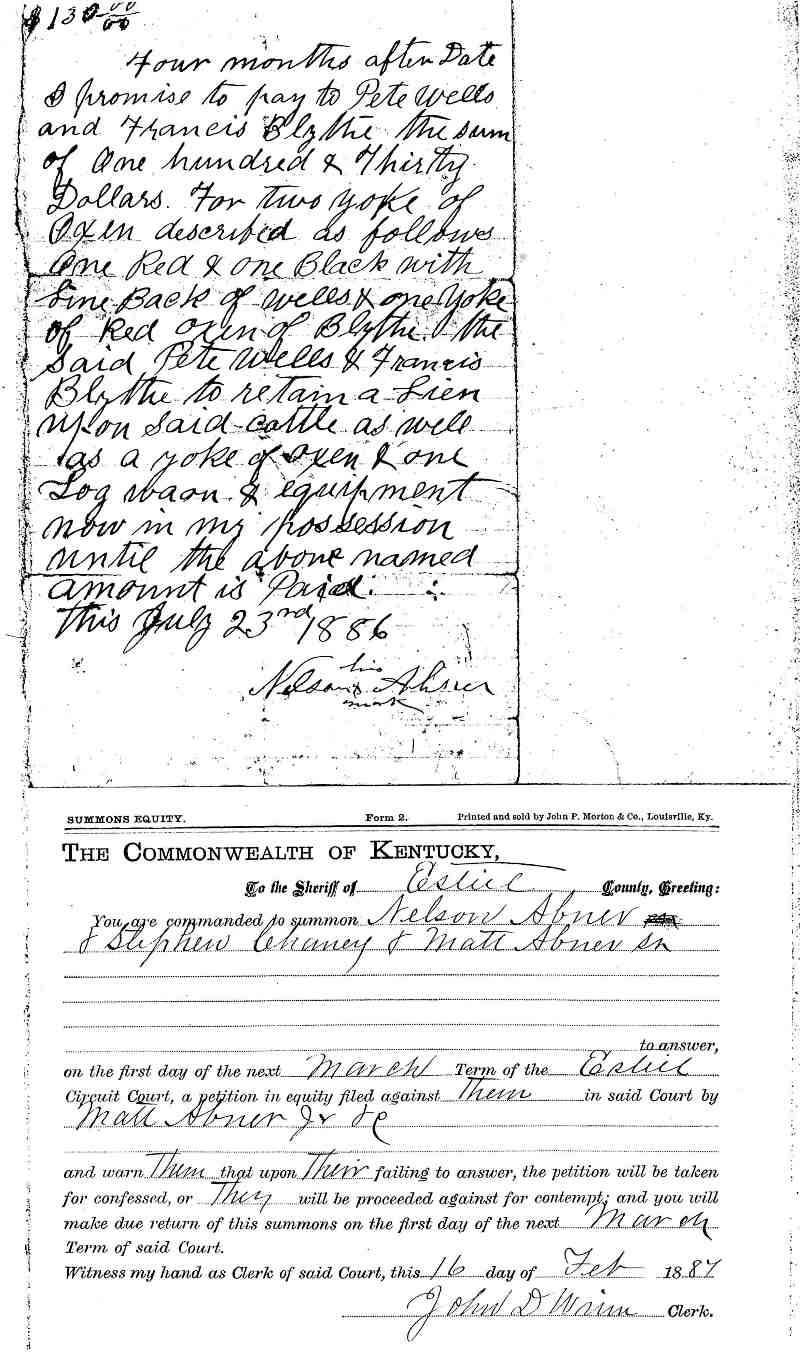 $130 00/00
Four months after Date
I promise to pay to Pete Wells
and Francis Blythe the sum
of One hundred & Thirty
Dollars. For two yoke of
Oxen described as follows
One Red & one Black with
Line Back of Wells & one Yoke
of Red oxen of Blythe. the
Said Pete Wells & Francis
Blythe to retain a Lien
upon said cattle as well
as a yoke of oxen & one
Log waon & equipment
now in my possession
until the above named
amount is Paid.
This July 23rd 1886
his
Nelson x Abner
mark
SUMMONS EQUITY. Form 2. Printed and sold by John P. Morton & Co., Louisville, Ky.
THE COMMONWEALTH OF KENTUCKY,
To the Sheriff of Estill County, Greeting:
You are commanded to summon Nelson Abner
& Stephen Chaney & Matt Abner sr
to answer,
on the first day of the next March Term of the Estill
Circuit Court, a petition in equity filed against Them in said Court by
Matt Abner Jr &c
and warn Them that upon Their failing to answer, the petition will be taken
for confessed, or They will be proceeded against for contempt; and you will
make due return of this summons on the first day of the next March
Term of said Court.
Witness my hand as Clerk of said Court, this 16 day of Feb 1887
John D Winn Clerk.